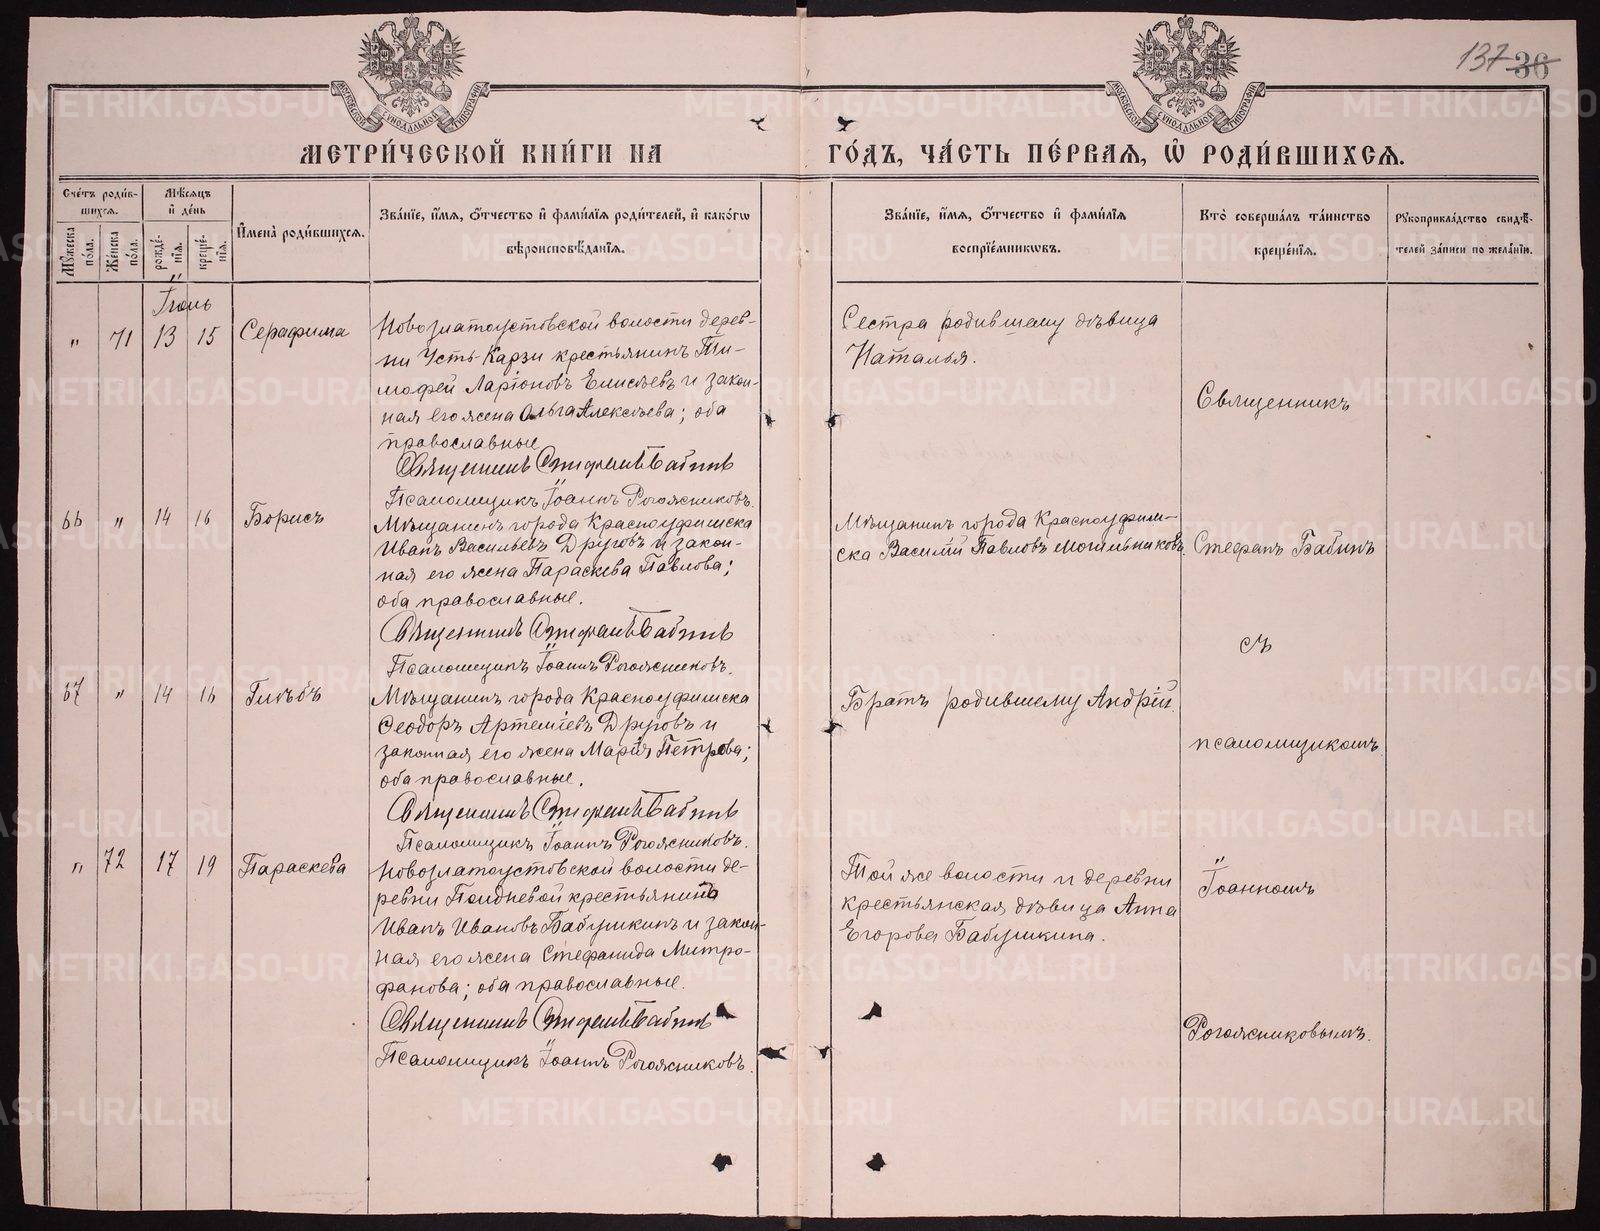 137 36
МОСКОВСКОЙ СѴНОДАЛЬНОЙ ТИПОГРАФІИ
МОСКОВСКОЙ СѴНОДАЛЬНОЙ ТИПОГРАФІИ
МЕТРИ́ЧЕСКОЙ КНИ́ГИ НА
ГО́ДЪ, ЧА́СТЬ ПЕ́РВАЯ, Ѡ҆ РОДИ́ВШИХСЯ.
Сче́тъ роди́в-
шихся.
Мꙋ́жеска по́ла.
Же́нска по́ла.
Мѣ́сяцъ
и҆ де́нь
рожде́-
нїя.
креще́-
нїя.
И҆мена̀ роди́вшихся.
Зва́нїе, и҆́мя, ѻ҆́тчество и҆ фами́лїя роди́телей, и҆ како́гѡ
вѣроисповѣ́данїя.
Зва́нїе, и҆́мя, ѻ҆́тчество и҆ фами́лїя
воспрїе́мникѡвъ.
Кто̀ соверша́лъ та́инство
креще́нїя.
Рꙋкоприкла́дство свидѣ́-
телей за́писи по жела́нїю.
Іюль
" 71 13 15 Серафима
Новозлатоустовской волости дерев-
ни Усть-Карзи крестьянинъ Ти-
мофей Ларіоновъ Елисѣевъ и закон-
ная его жена Ольга Алексѣева; оба
православные
Священникъ Стефанъ Бабинъ
Псаломщикъ Іоаннъ Рогожниковъ.
Сестра родившему дѣвица
Наталья.
Священникъ
66 " 14 16 Борисъ
Мѣщанинъ города Красноуфимска
Иванъ Васильевъ Друговъ и закон-
ная его жена Параскева Павлова;
оба православные.
Священникъ Стефанъ Бабинъ
Псаломщикъ Іоаннъ Рогожниковъ.
Мѣщанинъ города Красноуфим-
ска Василій Павловъ Могильниковъ
Стефанъ Бабинъ
съ
67 " 14 16 Глѣбъ
Мѣщанинъ города Красноуфимска
Ѳеодоръ Артеміевъ Друговъ и
законная его жена Марія Петрова;
оба православные.
Священникъ Стефанъ Бабинъ
Псаломщикъ Іоаннъ Рогожниковъ.
Братъ родившему Андрей.
псаломщикомъ
" 72 17 19 Параскева
Новозлатоустовской волости де-
ревни Полдневой крестьянинъ
Иванъ Ивановъ Бабушкинъ и закон-
ная его жена Стефанида Митро-
фанова; оба православные.
Священникъ Стефанъ Бабинъ
Псаломщикъ Іоаннъ Рогожниковъ.
Той же волости и деревни
крестьянская дѣвица Анна
Егорова Бабушкина.
Іоанномъ
Рогожниковымъ.
METRIKI.GASO-URAL.RU